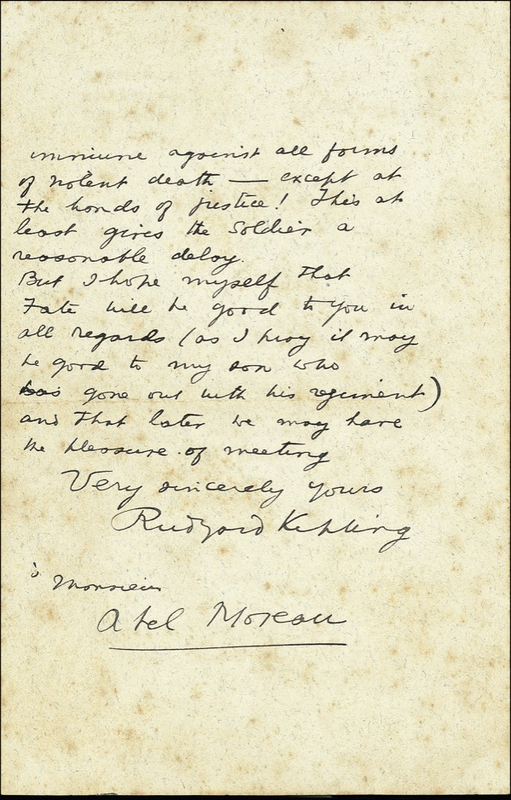 immune against all forms
of violent death — except at
the hands of justice! This at
least gives the Soldier a
reasonable delay.
But I hope myself that
Fate will be good to you in
all regards (as I pray it may
be good to my son who
has gone out with his regiment)
and that later we may have
the pleasure of meeting
Very sincerely yours
Rudyard Kipling
à Monsieur
Abel Moreau